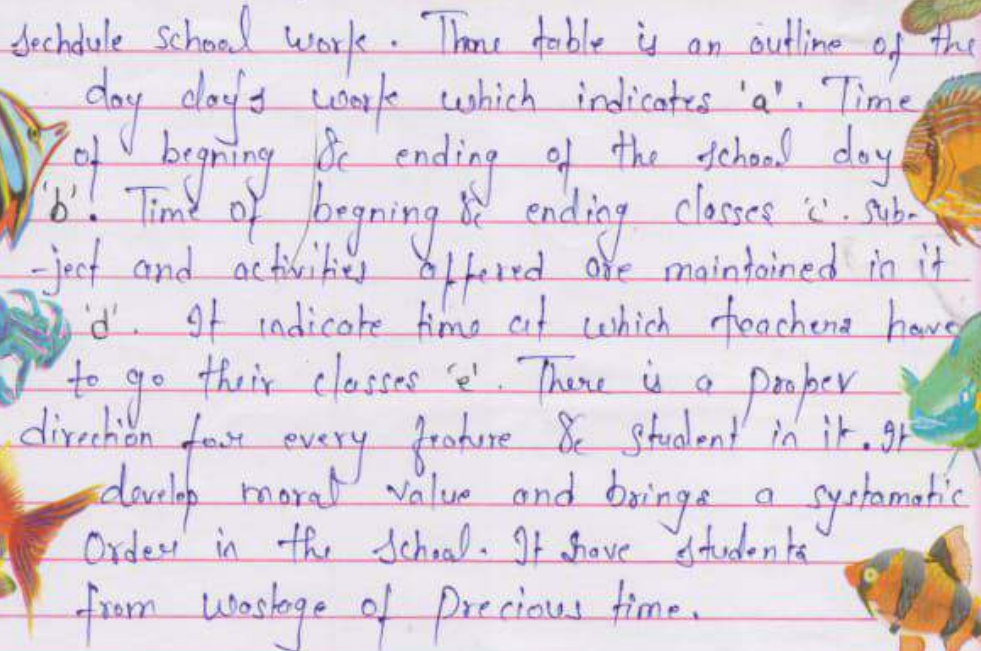 sechdule school work. Time table is an outline of the
day day's work which indicates 'a'. Time
of begning & ending of the school day
'b'. Time of begning & ending classes 'c'. sub-
-ject and activities offered are maintained in it
'd'. It indicate time at which teachers have
to go their classes 'e'. There is a proper
direction for every feature & student in it. It
develop moral value and brings a systamatic
Order in the school. It save students
from wastage of Precious time.